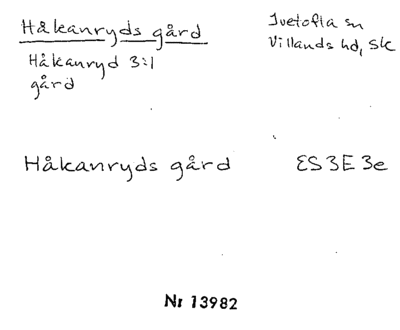 Håkanryds gård
Ivetofta sn
Villands hd, Sk
Håkanryd 3:1
gård
Håkanryds gård
ES 3E 3e
Nr 13982